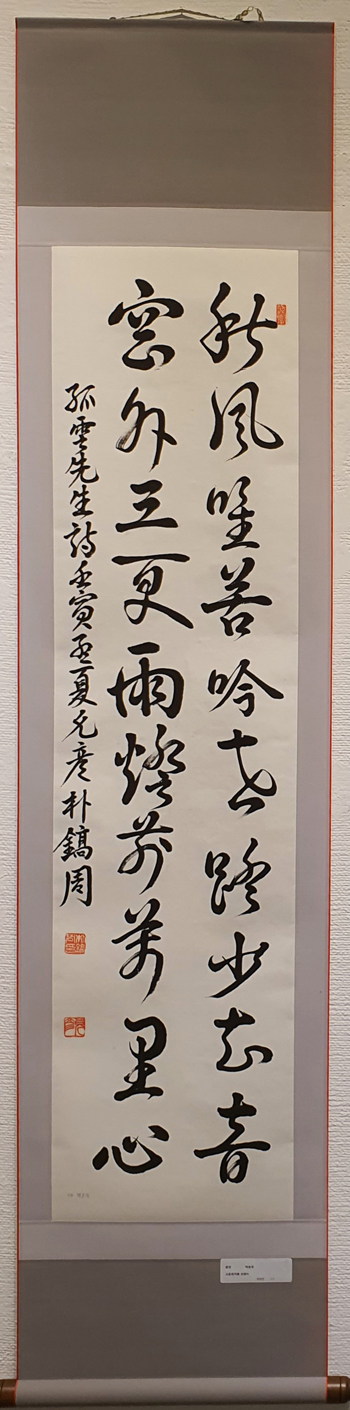 秋風唯苦吟世路少知音
窓外三更雨燈前萬里心
孤雲先生詩壬寅夏彦朴鎬周